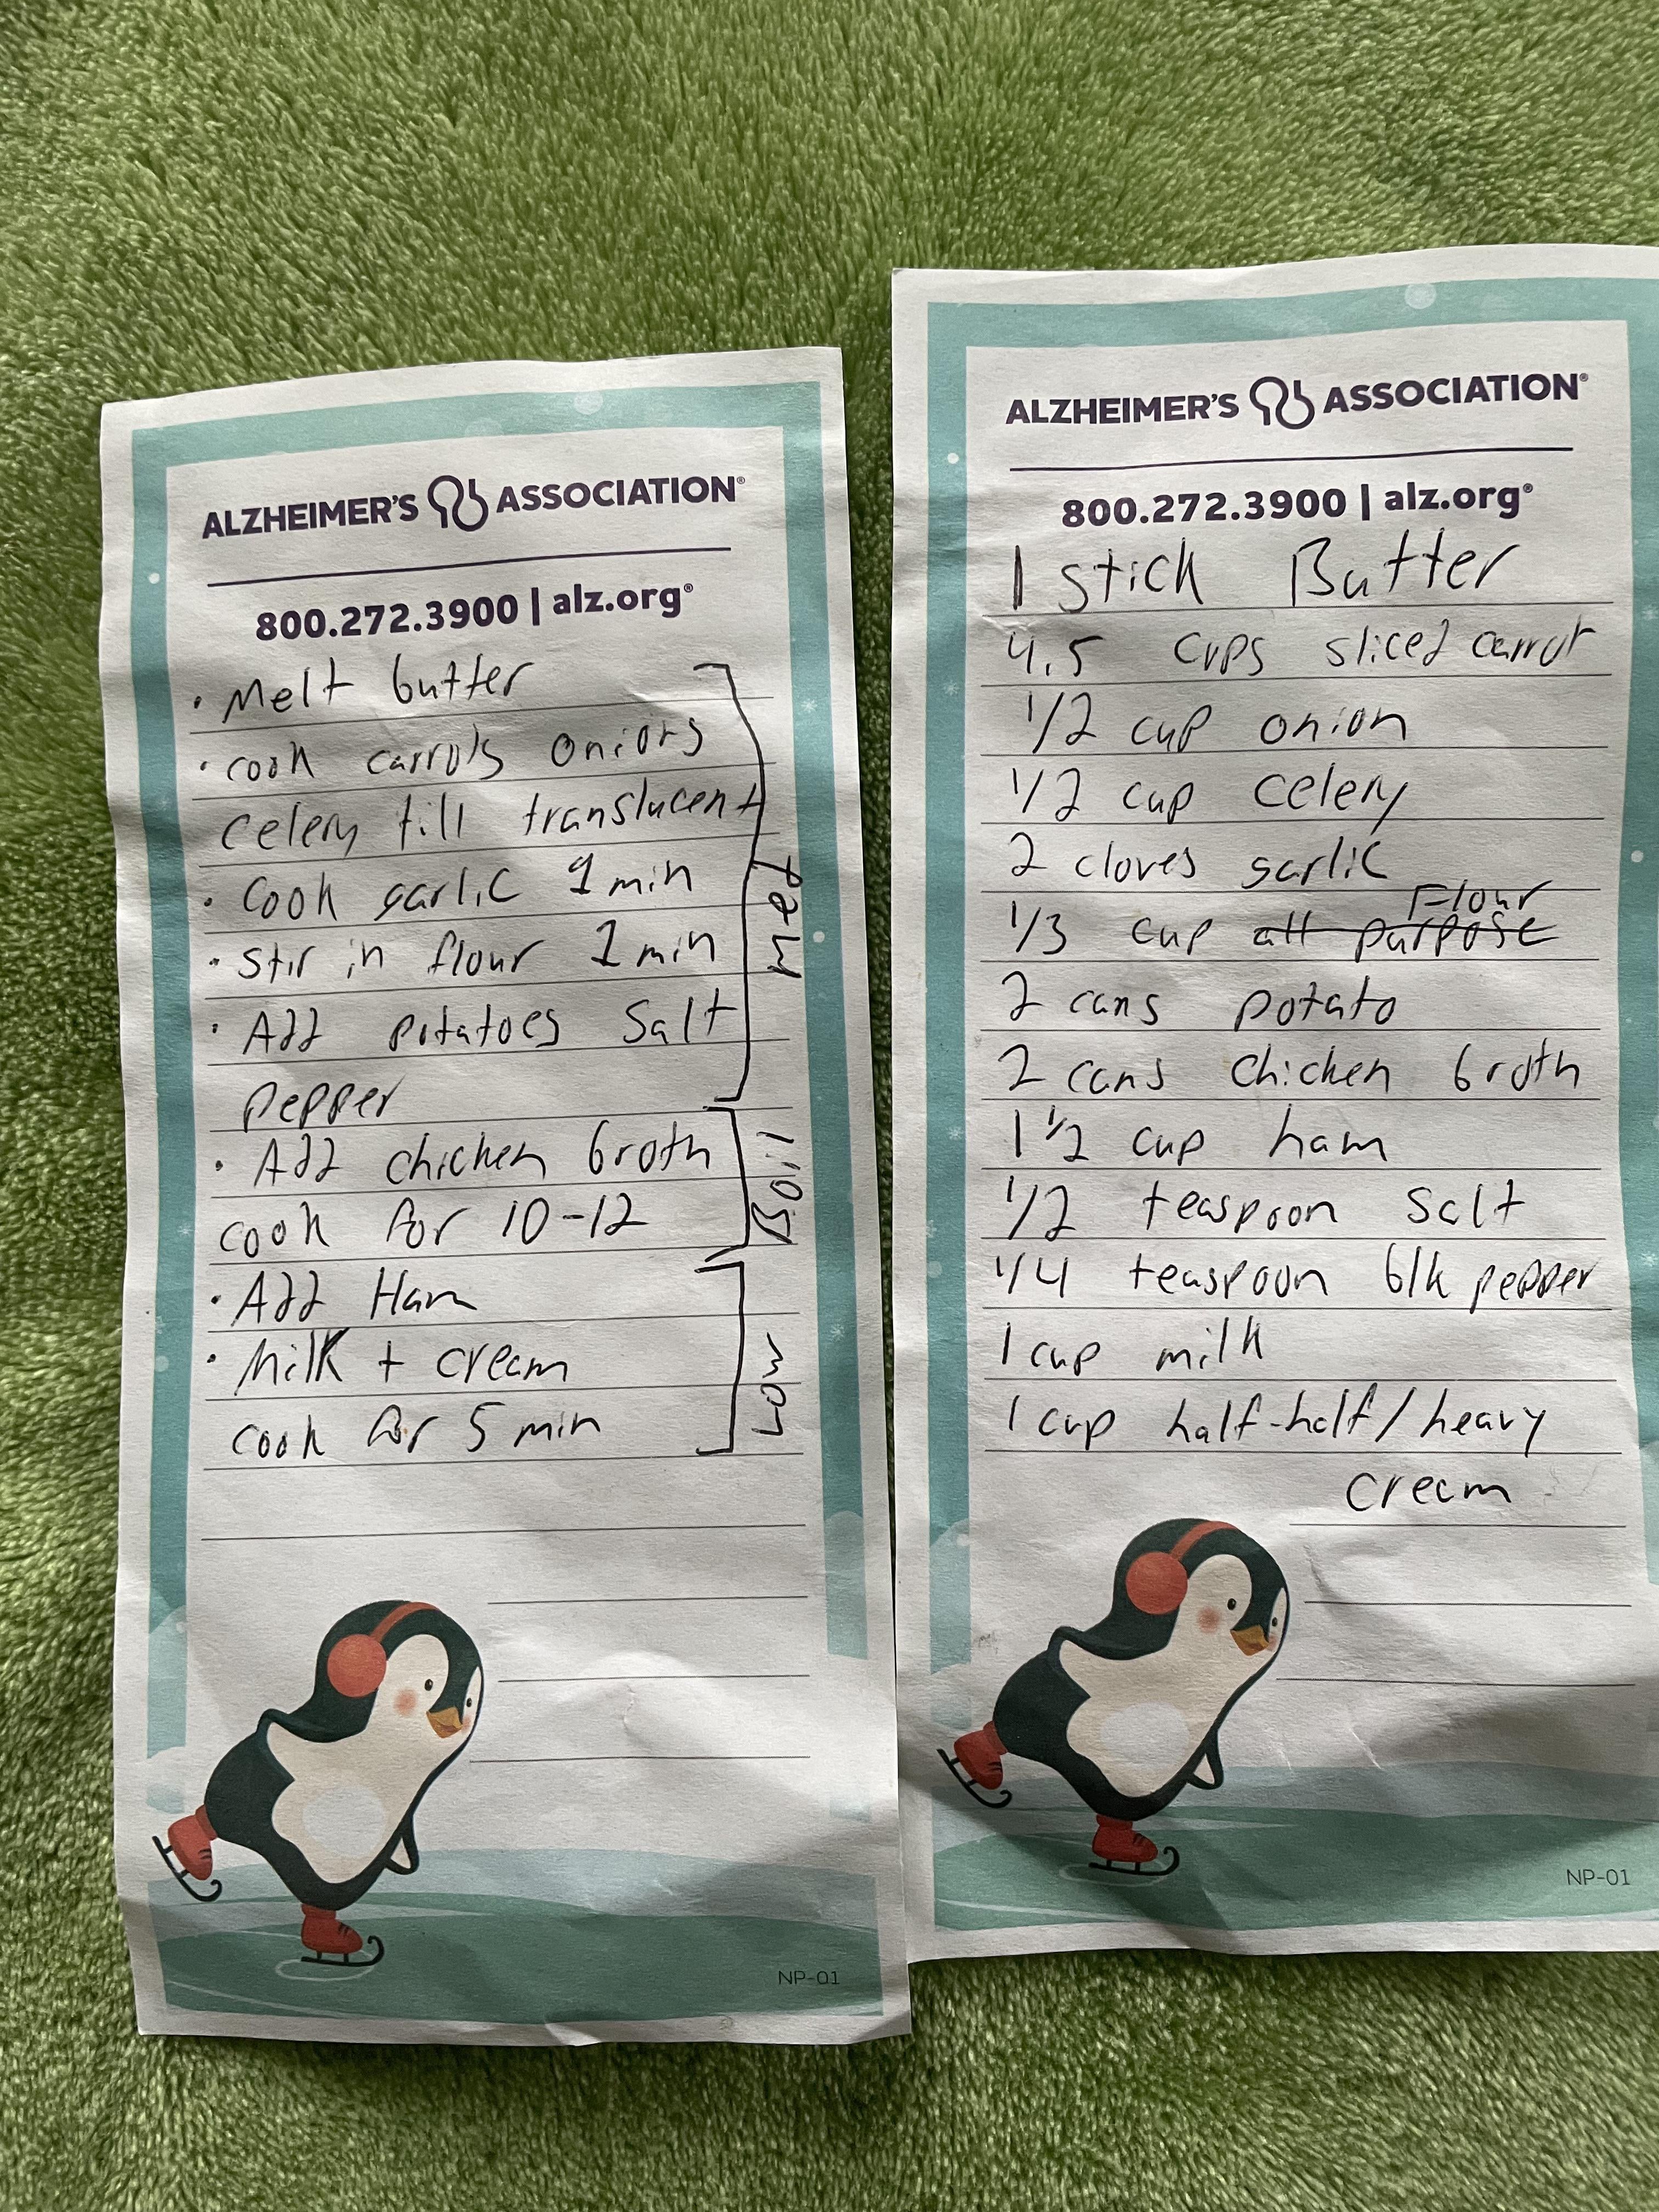 ALZHEIMER'S ASSOCIATION®
800.272.3900 | alz.org®
• Melt butter
• cook carrots onions
celery till translucent
• Cook garlic 1 min
• Stir in flour 1 min
• Add potatoes Salt
pepper
Med
• Add chicken broth
cook for 10-12
Boil
• Add Ham
• Milk + cream
cook for 5 min
Low
NP-01
ALZHEIMER'S ASSOCIATION®
800.272.3900 | alz.org®
1 stick Butter
4.5 cups sliced carrot
1/2 cup onion
1/2 cup celery
2 cloves garlic
Flour
1/3 cup all purpose
2 cans potato
2 cans chicken broth
1 1/2 cup ham
1/2 teaspoon salt
1/4 teaspoon blk pepper
1 cup milk
1 cup half-half/heavy
cream
NP-01